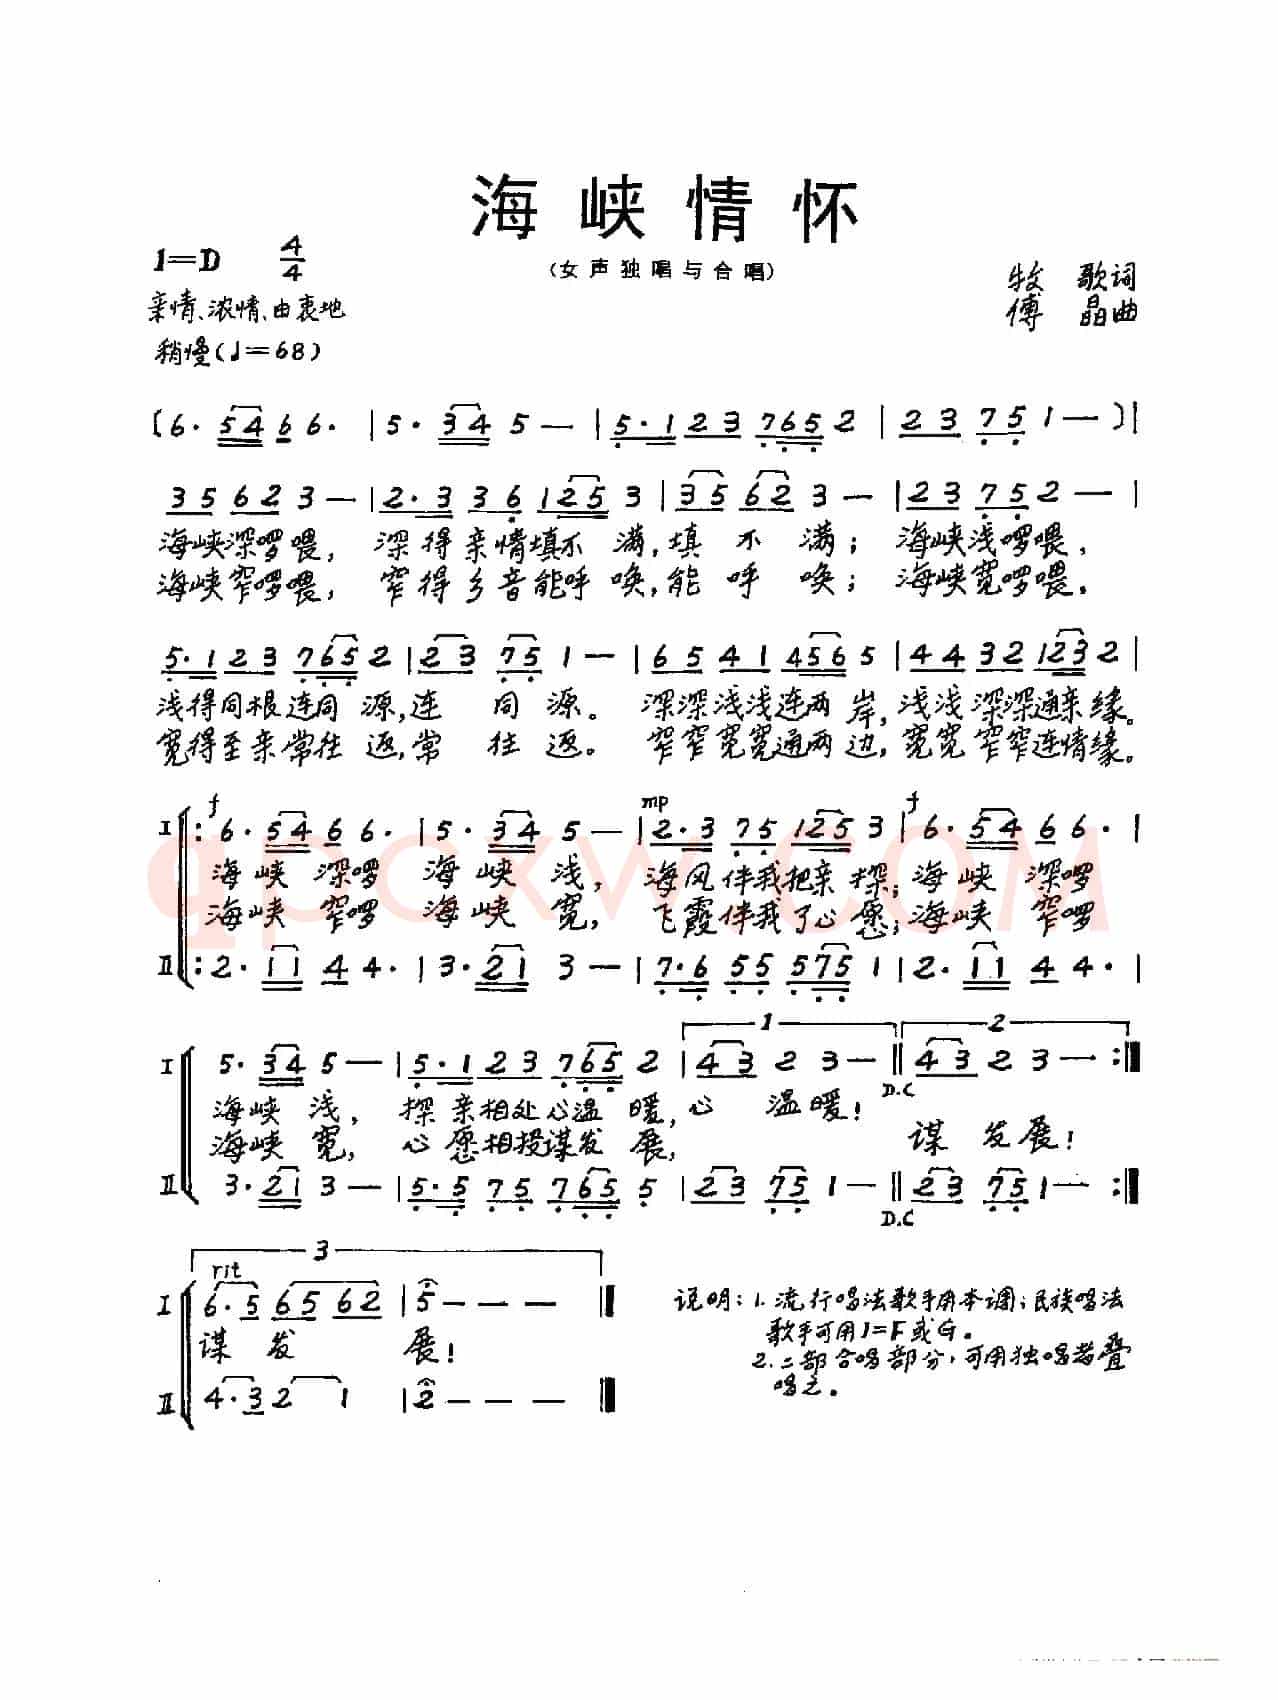 海峡情怀
(女声独唱与合唱)
1=D 4/4
牧 歌词
亲情、浓情、由衷地
傅 晶曲
稍慢(♩=68)
(6· 54 6 6· | 5· 34 5 — | 5·1 23 765 2 | 23 75 1 — )|
35 62 3 — | 2·3 36 125 3 | 35 62 3 — | 23 75 2 — |
海峡深啰喂, 深得亲情填不 满,填 不 满; 海峡浅啰喂,
海峡窄啰喂, 窄得乡音能呼 唤,能 呼 唤; 海峡宽啰喂,
5·1 23 765 2 | 23 75 1 — | 65 41 456 5 | 44 32 123 2 |
浅得同根连同 源,连 同 源。 深深浅浅连两 岸,浅浅深深通亲缘。
宽得至亲常往 返,常 往 返。 窄窄宽宽通两 边,宽宽窄窄连情缘。
f mp f
I ‖: 6· 54 6 6· | 5· 34 5 — | 2·3 75 125 3 | 6· 54 6 6· |
海峡 深啰 海峡 浅, 海风伴我把亲 探; 海峡 深啰
海峡 窄啰 海峡 宽, 飞霞伴我了心愿; 海峡 窄啰
II ‖: 2· 11 4 4· | 3· 21 3 — | 7·6 55 575 1 | 2· 11 4 4· |
1 2
I 5· 34 5 — | 5·1 23 765 2 | 43 2 3 — ‖ 43 2 3 — :‖
D.C
海峡 浅, 探亲相处心温 暖,心 温暖!
海峡 宽, 心愿相投谋发 展, 谋 发展!
II 3· 21 3 — | 5·5 75 765 5 | 23 75 1 — ‖ 23 75 1 — :‖
D.C
3
rit
I 6·5 65 62 | 5 — — — ‖
谋 发 展!
II 4·3 2 1 | 2 — — — ‖
说明:1.流行唱法歌手用本调;民族唱法
歌手可用1=F或G。
2.二部合唱部分,可用独唱者叠
唱之。
qpcxw.COM